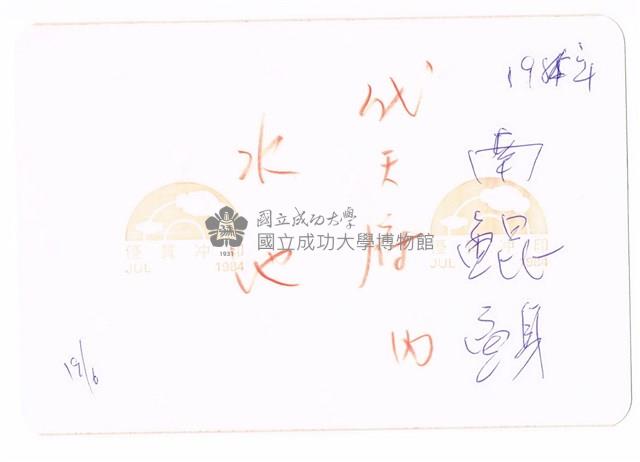 1984年
南鯤鯓
代天府內
水池
19/6
優質沖印
JUL 1984
優質沖印
JUL 1984
1931
國立成功大學
國立成功大學博物館